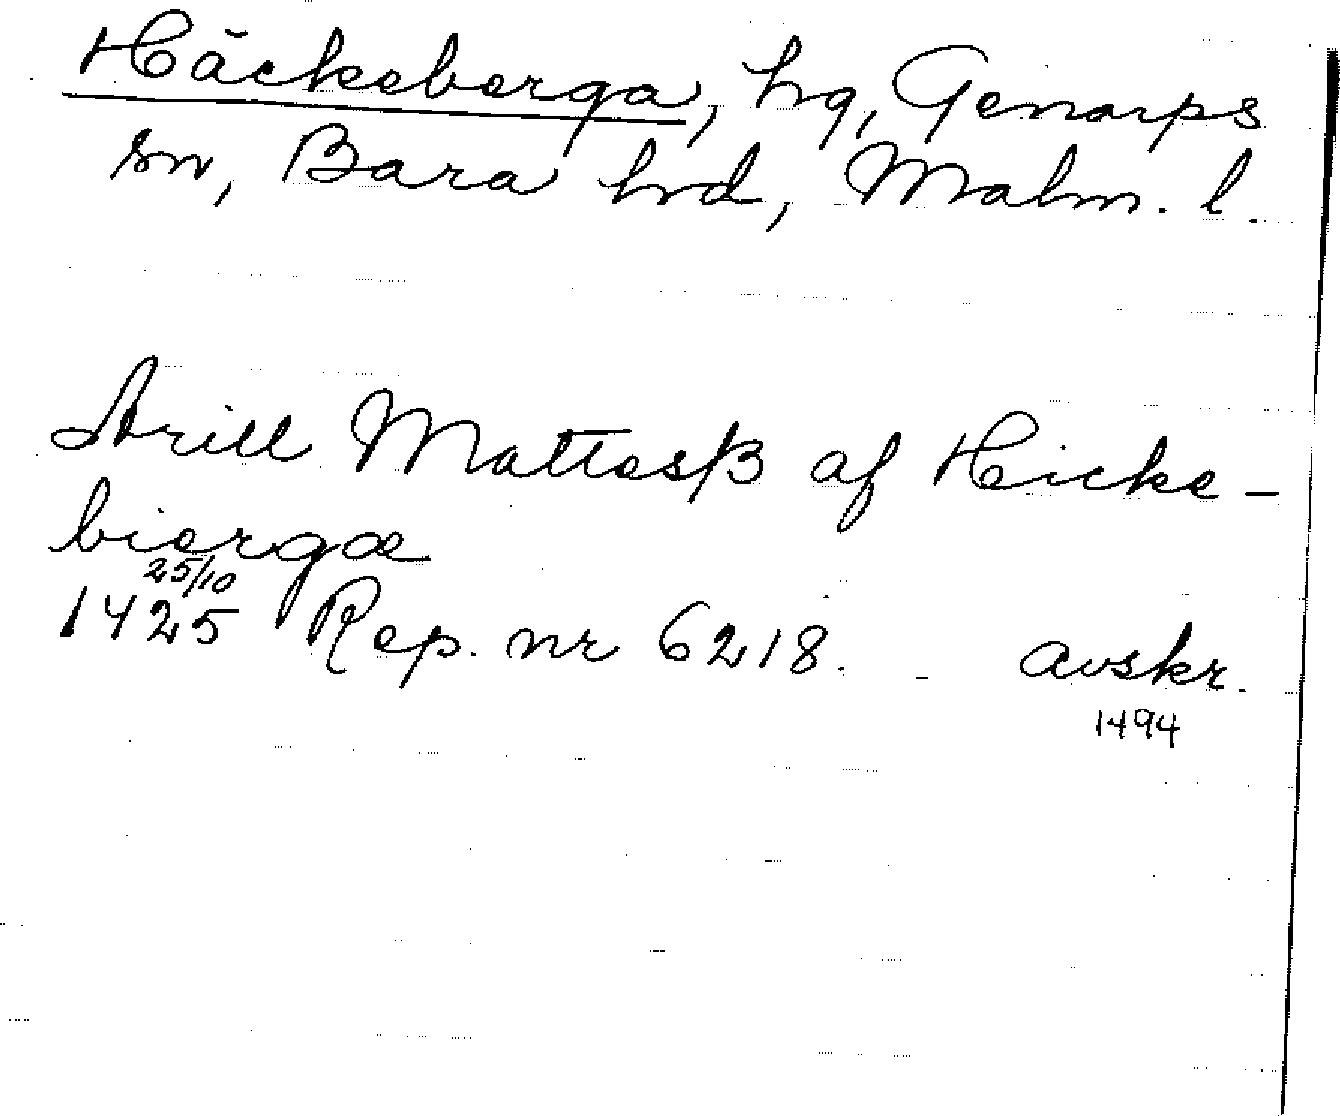 Häckeberga, hg, Genarps
sn, Bara hrd, Malm. l.
Arill Mattesß af Hicke-
biergæ
25/10
1425 Rep. nr 6218. avskr.
1494